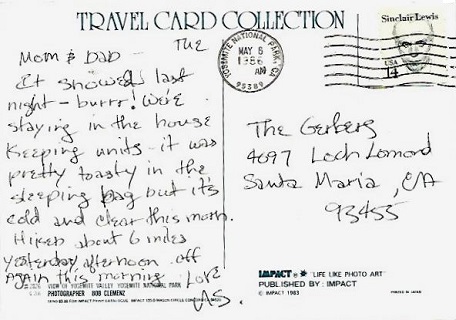 TRAVEL CARD COLLECTION
THE
Mom & Dad -
It snowed last
night - burrr! We're
staying in the house
Keeping units - it was
pretty toasty in the
sleeping bag but it's
cold and clear this morn.
Hiked about 6 miles
yesterday afternoon. off
again this morning. Love
US.
VIEW OF YOSEMITE VALLEY YOSEMITE NATIONAL PARK
PHOTOGRAPHER BOB CLEMENZ
YOSEMITE NATIONAL PARK, CA
MAY 6
1986
AM
95389
Sinclair Lewis
USA
14
The Gerbers
4697 Loch Lomond
Santa Maria, CA
93455
IMPACT ® "LIFE LIKE PHOTO ART"
PUBLISHED BY: IMPACT
© IMPACT 1983
PRINTED IN JAPAN